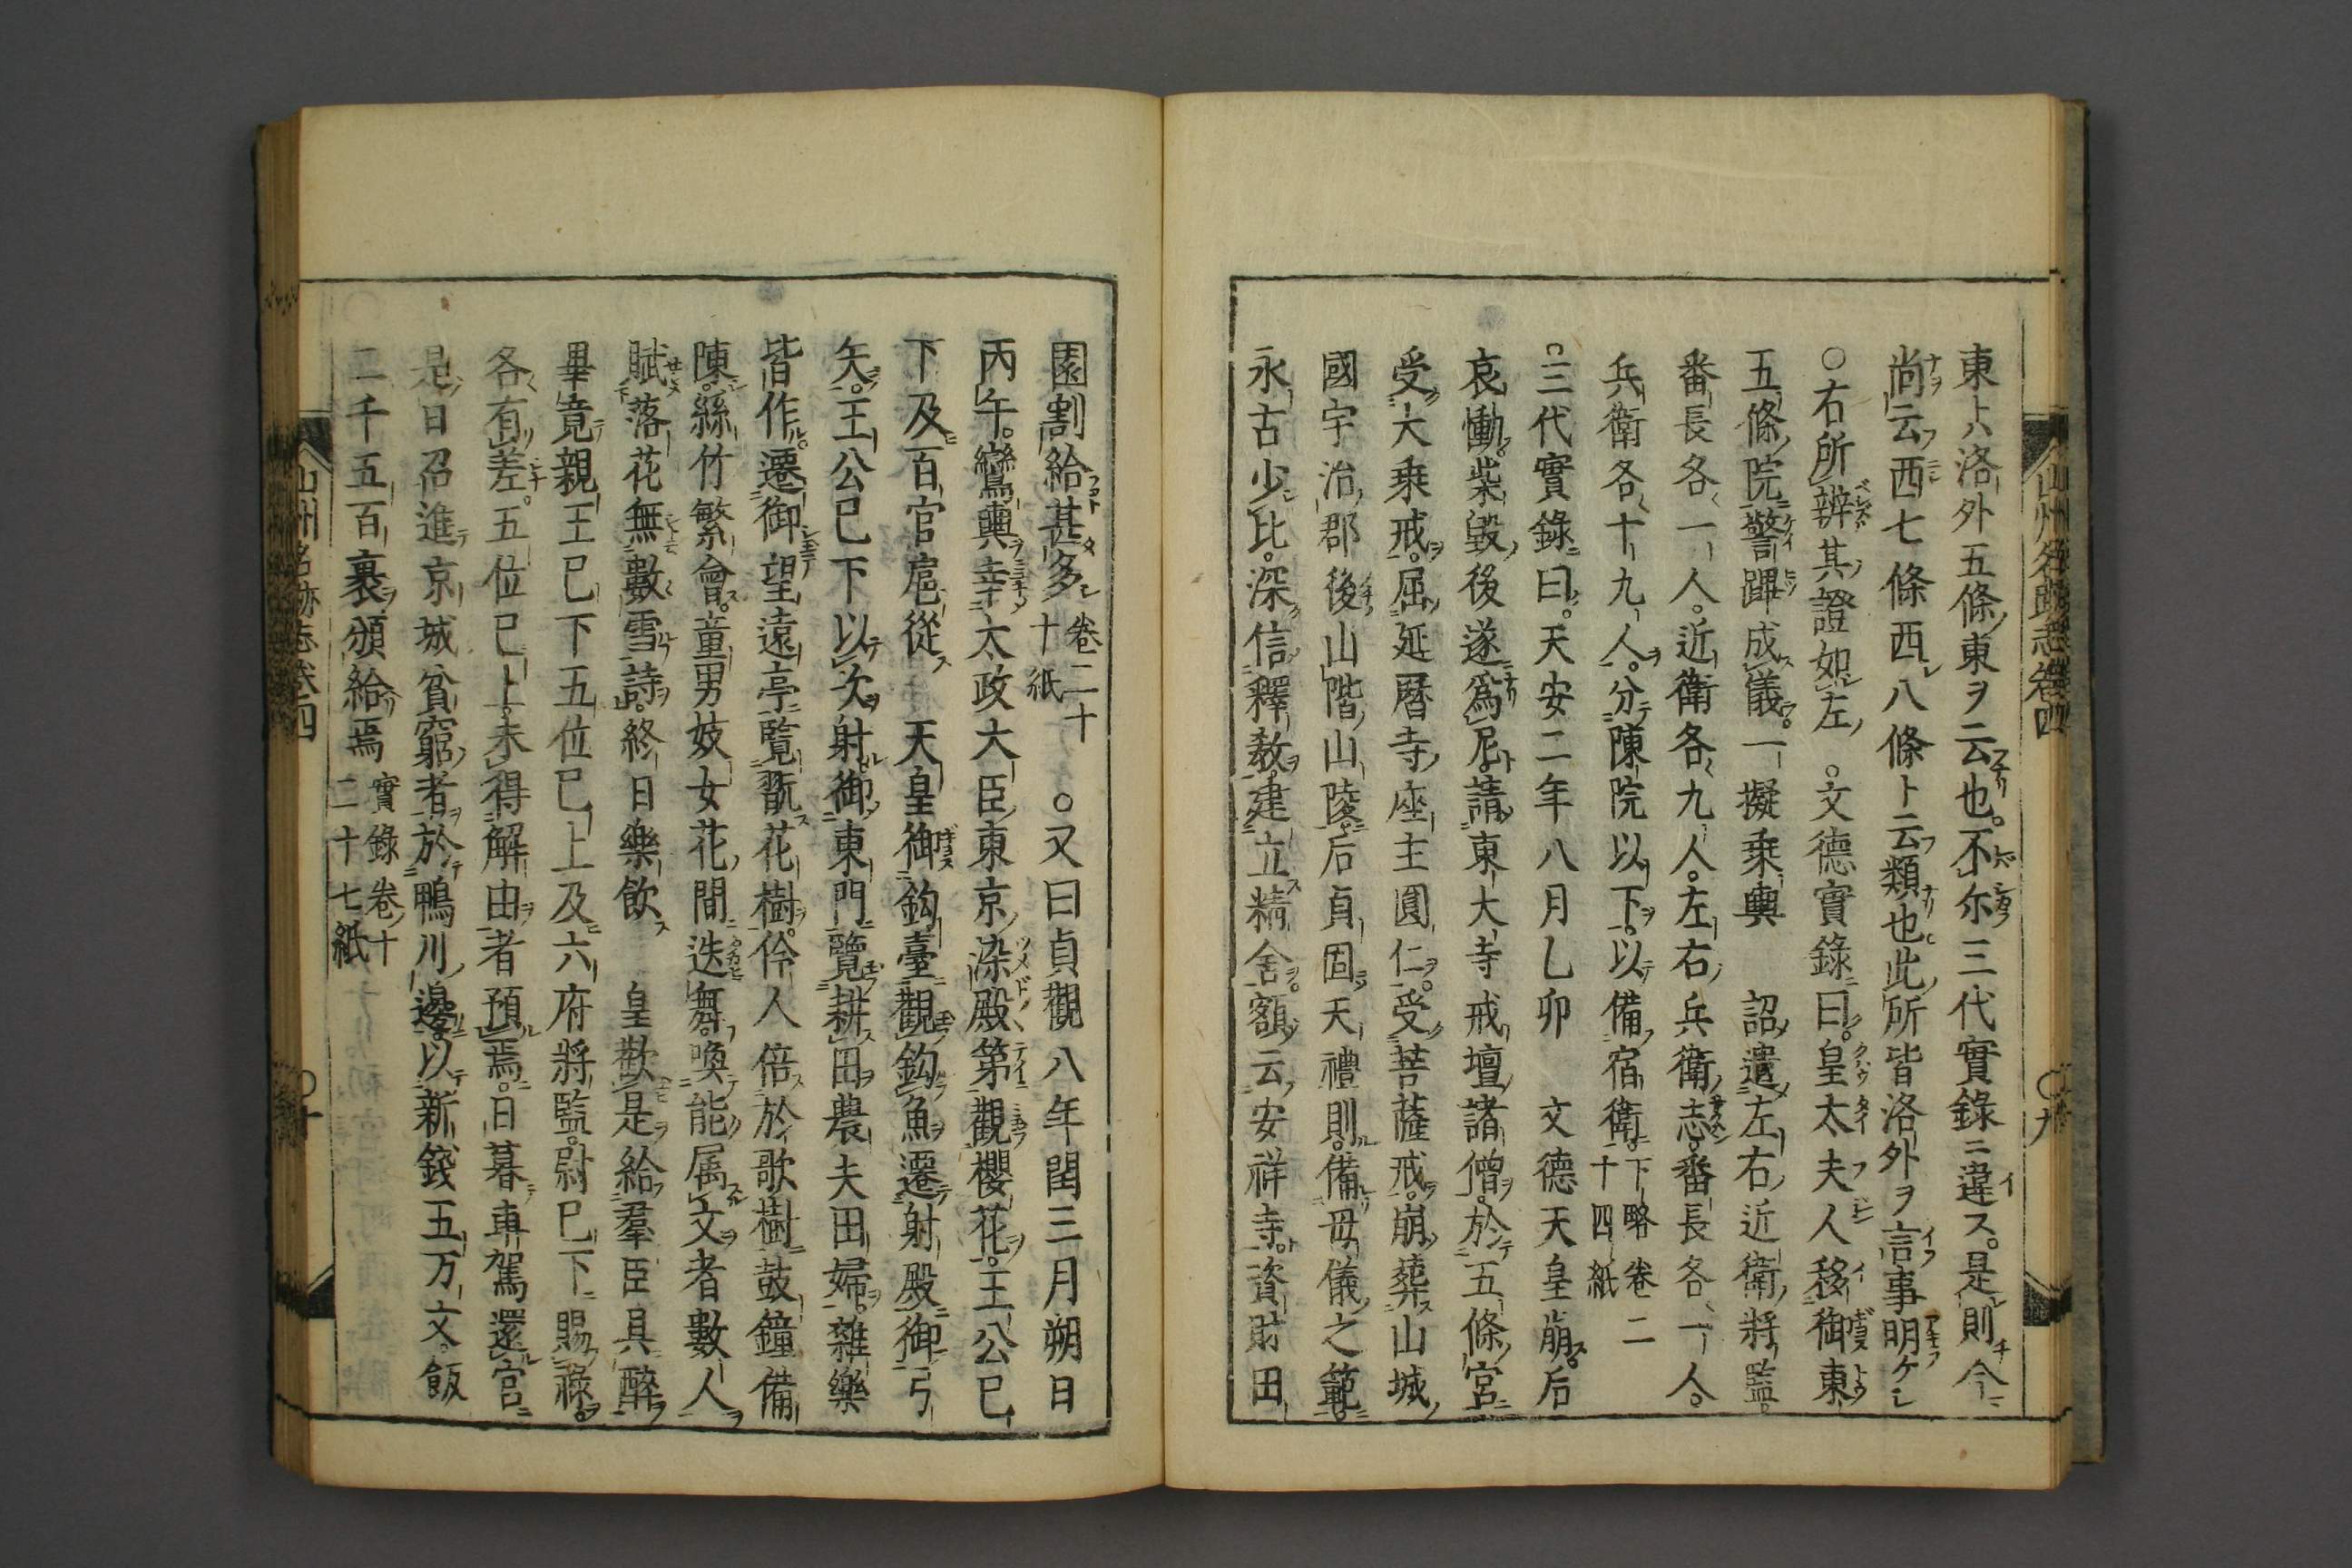 山州名跡志卷四
〇九
東ハ洛外五條東ヲ云也。不尓三代實錄ニ違ス。是則今
尚云西七條西八條ト云類也。此所皆洛外ヲ言事明ケシ
〇右所辨其證如左。文德實錄曰。皇太夫人移御東
五條院。警蹕成儀。一擬乗輿 詔遣左右近衛將監。
番長各一人。近衛各九人。左右兵衛志。番長各一人。
兵衛各十九人。分陳院以下。以備宿衛。下略卷二
十四紙
〇三代實錄曰。天安二年八月乙卯 文德天皇崩。后
哀慟。柴毀後遂爲尼。請東大寺戒壇諸僧。於五條宮
受大乗戒。屈延暦寺座主圓仁。受菩薩戒。崩。葬山城
國宇治郡後山階山陵。后貞固天禮則。備母儀之範。
永古少比。深信釋教。建立精舍。額云安祥寺。資財田
園割給甚多卷二十
十紙。又曰貞觀八年閏三月朔日
丙午。鸞輿幸太政大臣東京染殿第觀櫻花。王公已
下及百官扈從 天皇御釣臺觀釣魚。遷射殿御弓
矢。王公已下以次射御東門覽耕田農夫田婦。雜樂
皆作。遷御望遠亭覽翫花樹。伶人倍於歌樹。鼓鐘備
陳。絲竹繁會。童男妓女花間迭舞。喚能属文者數人
賦落花無數雪詩。終日樂飲 皇歡是給羣臣具醉
畢竟親王已下五位已上及六府將監。尉已下賜禄。
各有差。五位已上未得解由者預焉。日暮車駕還宮
是日召進京城貧窮者於鴨川邊。以新錢五万文。飯
二千五百裹。頒給焉實錄卷十
二十七紙
山州名跡志卷四
〇十